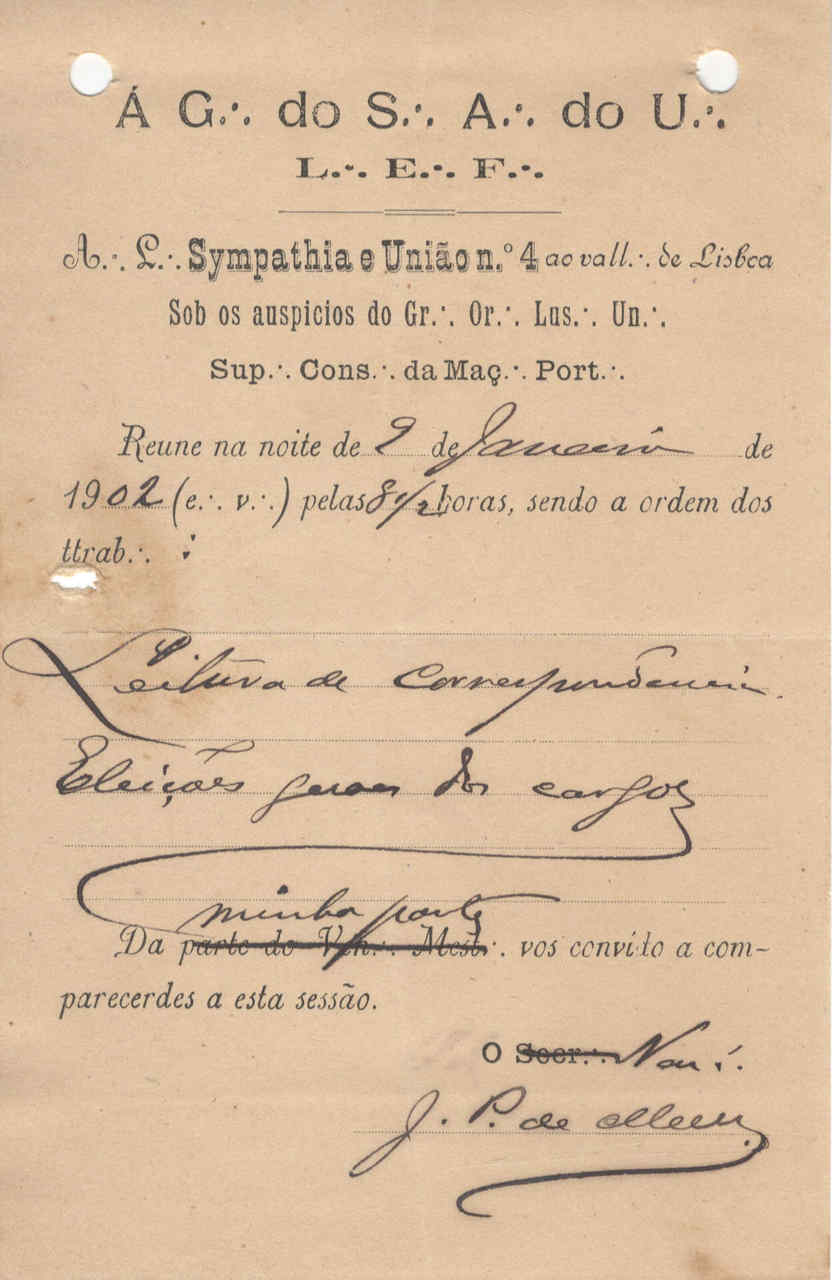 Á G.∙. do S.∙. A.∙. do U.∙.
L.∙. E.∙. F.∙.
A.∙. L.∙. Sympathia e União n.º 4 ao vall.∙. de Lisboa
Sob os auspicios do Gr.∙. Or.∙. Lus.∙. Un.∙.
Sup.∙. Cons.∙. da Maç.∙. Port.∙.
Reune na noite de 2 de Janeiro de
1902 (e.∙. v.∙.) pelas 8 1/2 horas, sendo a ordem dos
ttrab.∙. :
Leitura de correspondencia.
Eleições geraes dos cargos
minha parte
Da parte do Ven.∙. Mest.∙. vos convido a com-
parecerdes a esta sessão.
O Secr.∙. Ven∴
J. P. de